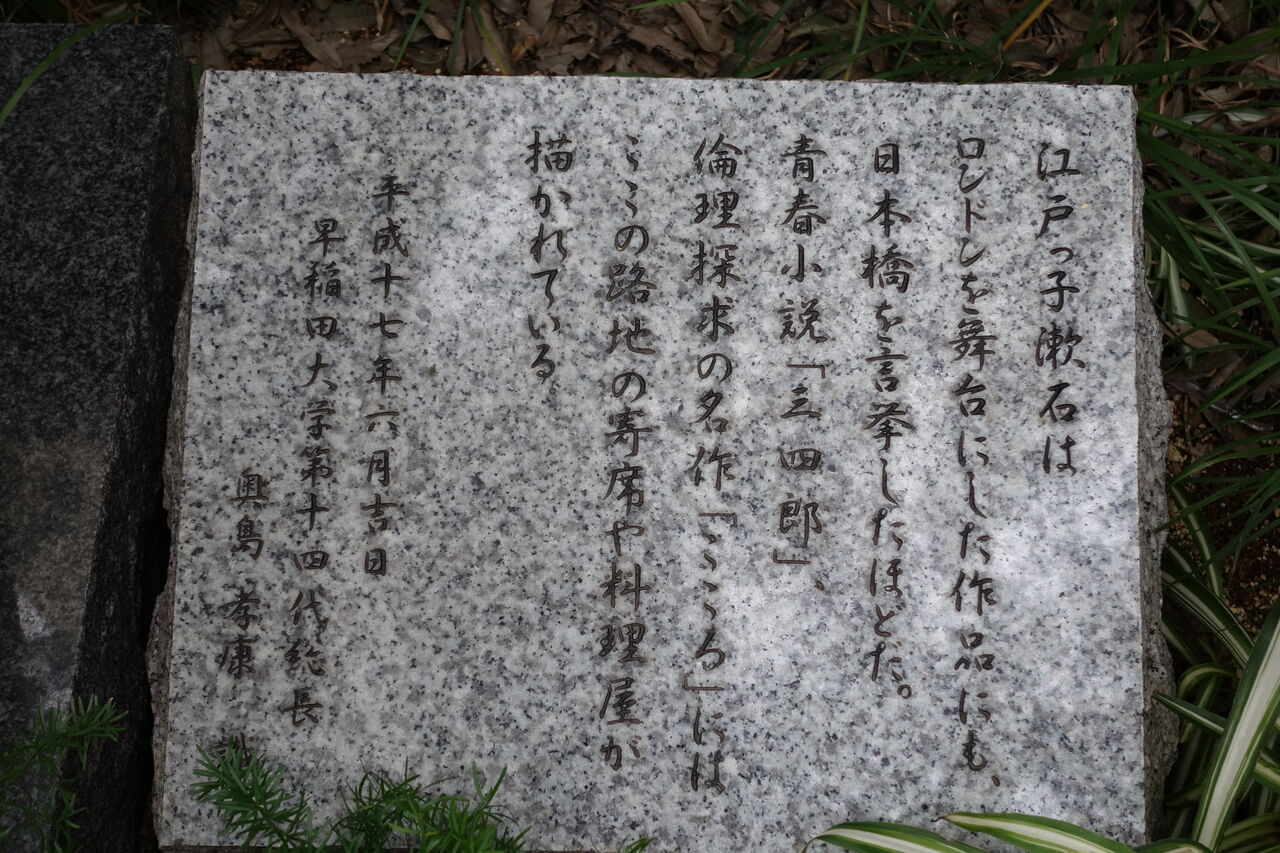 江戸っ子漱石は
ロンドンを舞台にした作品にも、
日本橋を言挙したほどだ。
青春小説「三四郎」、
倫理探求の名作『こころ」には
こゝの路地の寄席や料理屋が
描かれている。
平成十七年六月吉日
早稲田大学第十四代総長
奥島孝康